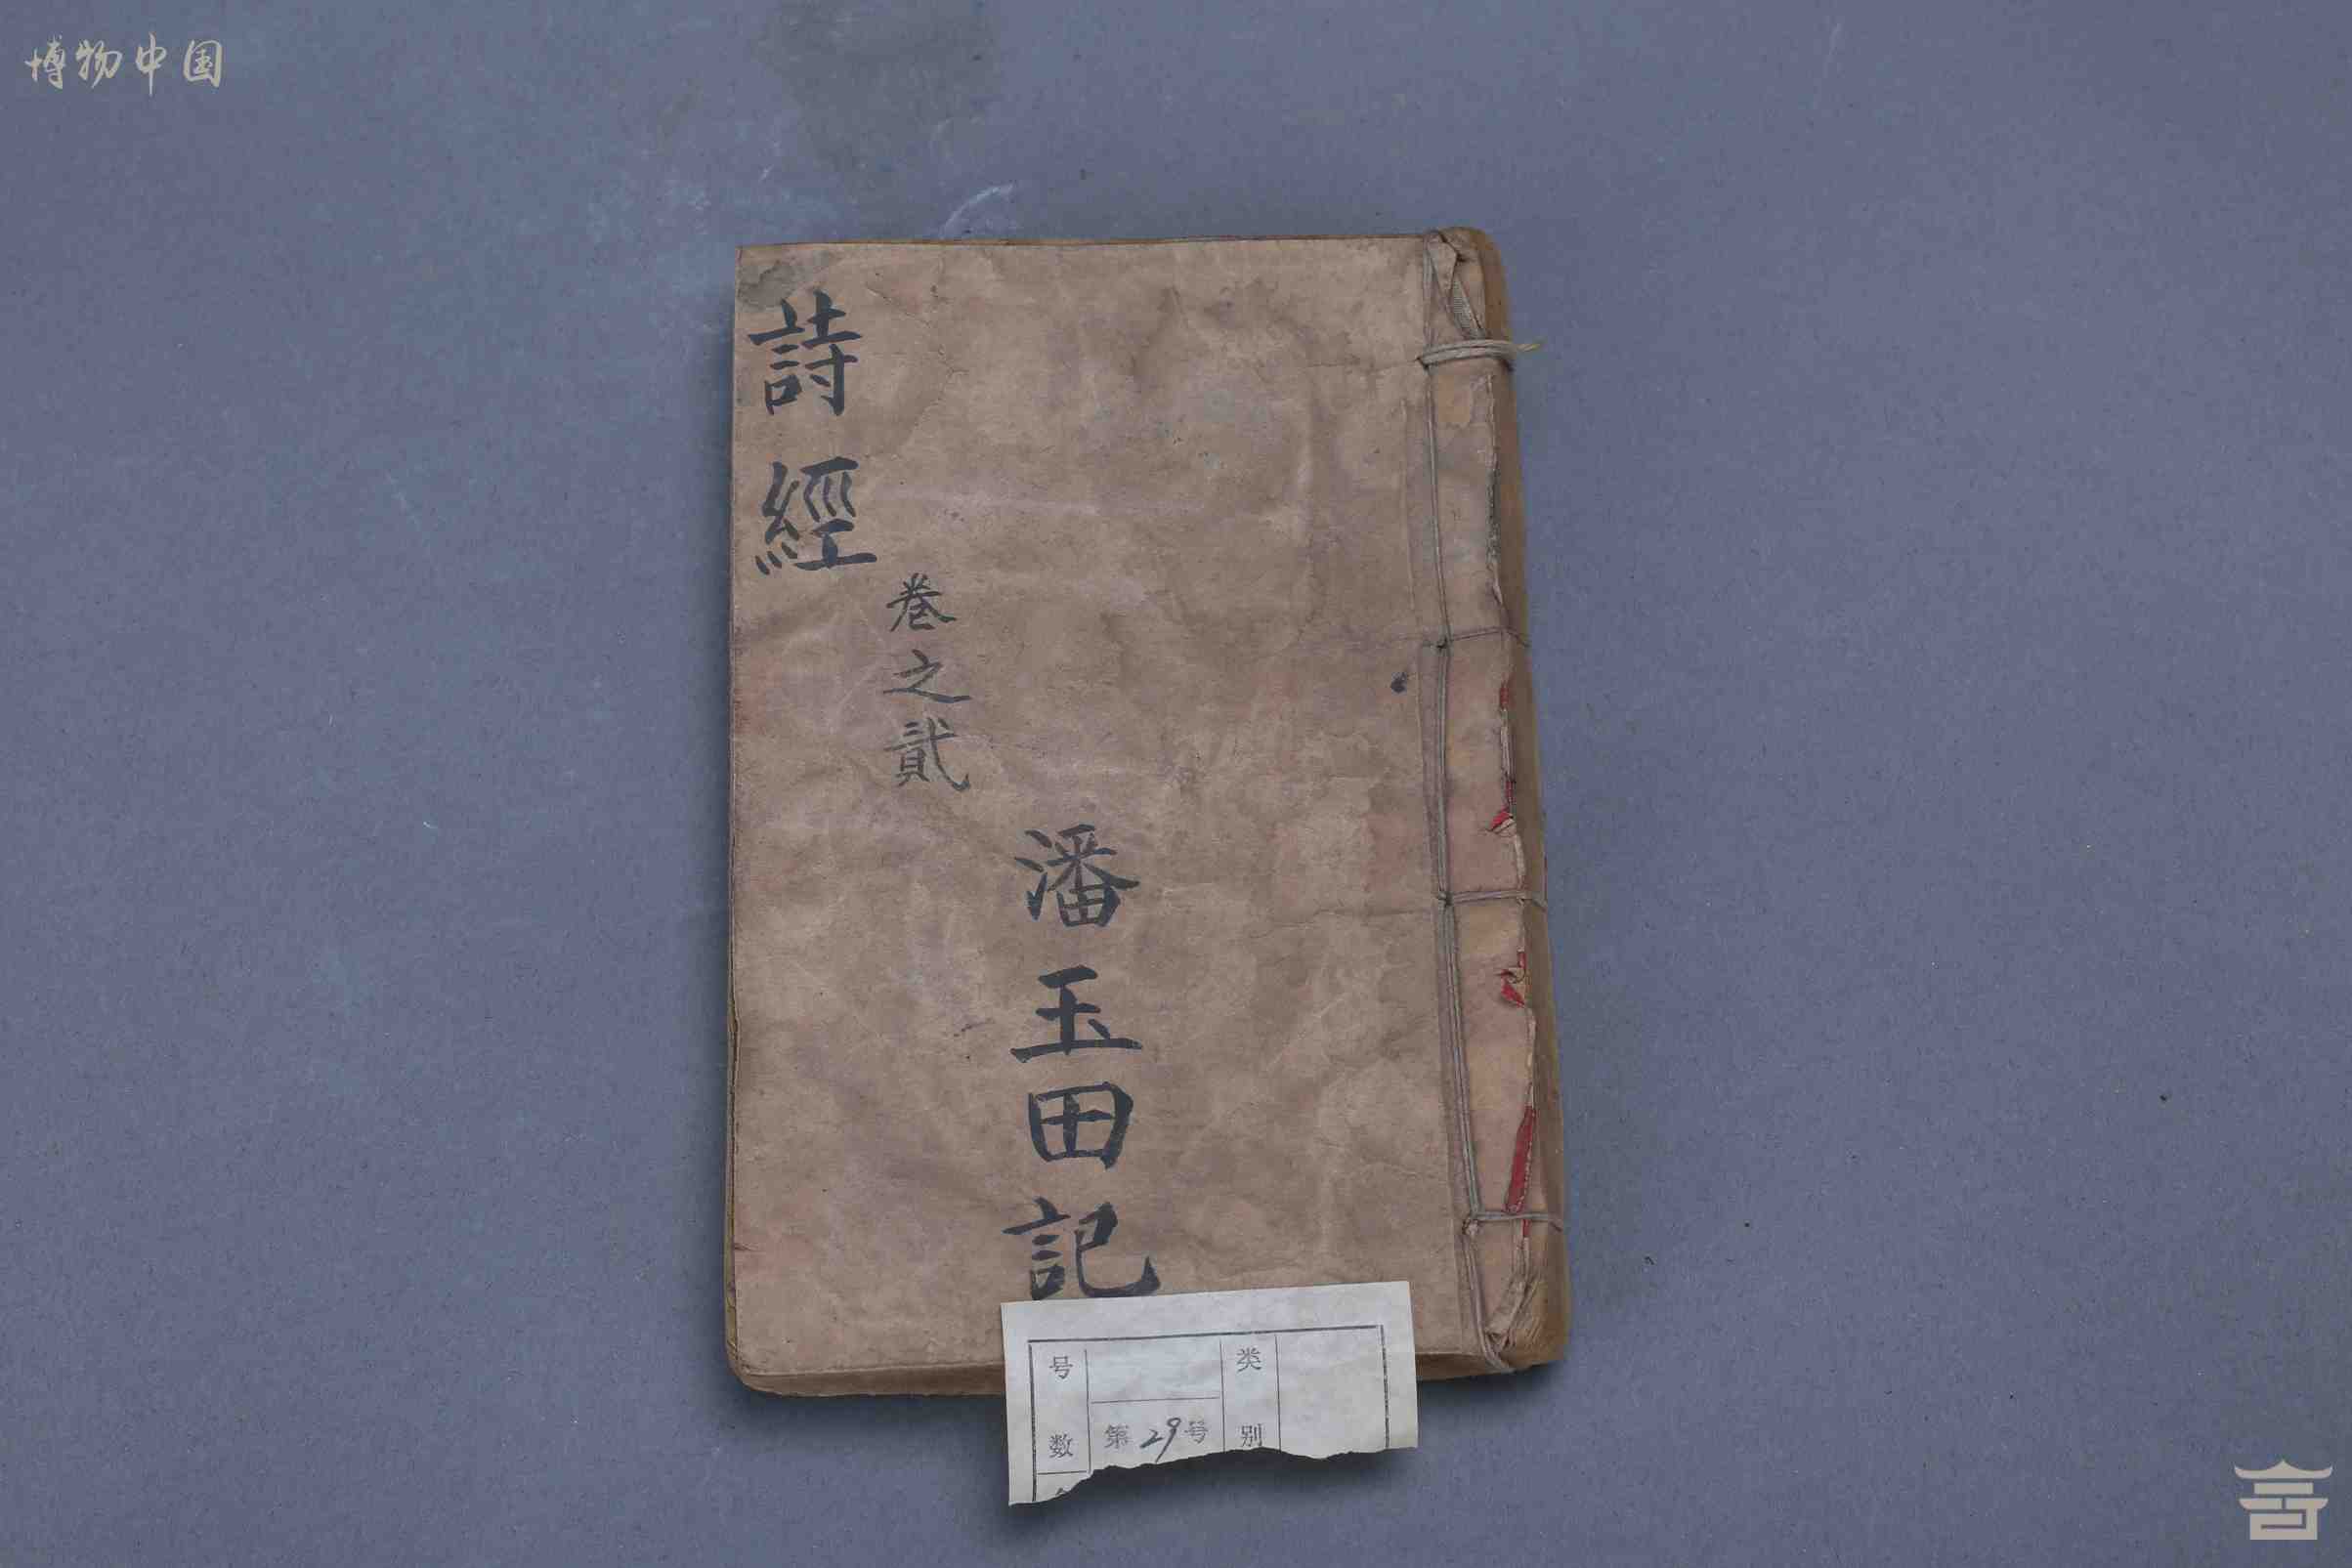 博物中国
詩經
卷之貳
潘玉田記
号数
第29号
类别